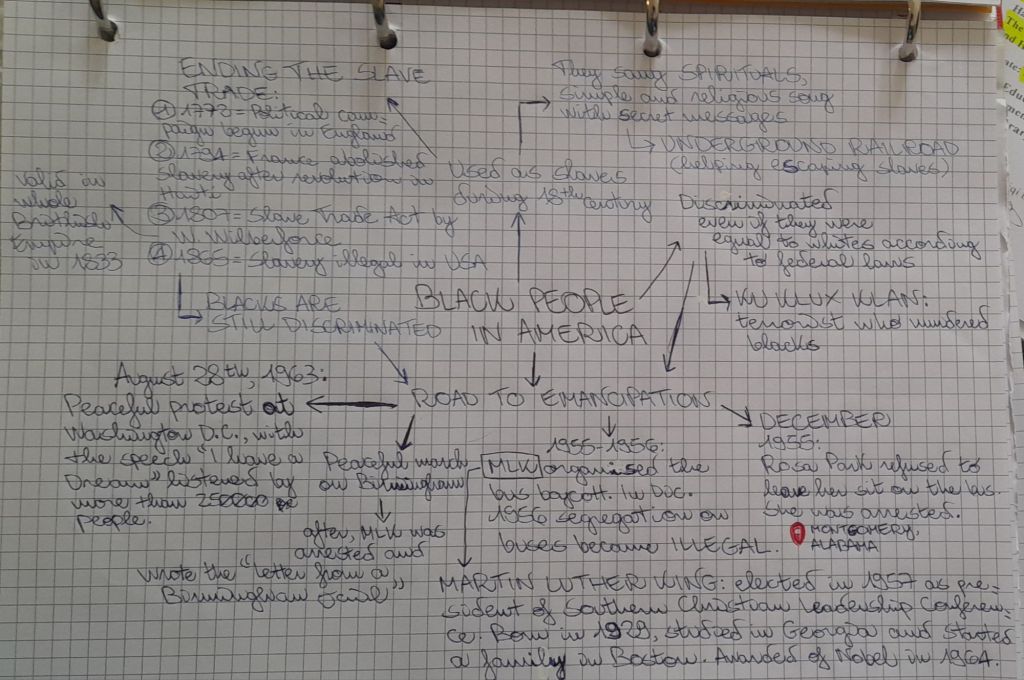 ENDING THE SLAVE
TRADE:
① 1773 = Political cam-
paign begun in England
② 1794 = France abolished
slavery after revolution in
Haiti
③ 1807 = Slave Trade Act by
W. Wilberforce
④ 1865 = Slavery illegal in USA
valid in
whole
Empire
in 1833
BLACKS ARE
STILL DISCRIMINATED
They sang SPIRITUALS,
simple and religious song
with secret messages
UNDERGROUND RAILROAD
(helping escaping slaves)
Used as slaves
during 18th century
Discriminated
even if they were
equal to whites according
to federal laws
KU KLUX KLAN:
terrorist who murdered
blacks
BLACK PEOPLE
IN AMERICA
ROAD TO EMANCIPATION
August 28th, 1963:
Peaceful protest at
Washington D.C., with
the speech "I have a
Dream" listened by
more than 250000
people.
Peaceful march
on Birmingham
after, MLK was
arrested and
wrote the "letter from a
Birmingham Jail"
1955-1956:
MLK organised the
bus boycott. In Dec.
1956 segregation on
buses became ILLEGAL.
DECEMBER
1955:
Rosa Park refused to
leave her sit on the bus.
She was arrested.
MONTGOMERY,
ALABAMA
MARTIN LUTHER KING: elected in 1957 as pre-
sident of Southern Christian Leadership Conferen-
ce. Born in 1929, studied in Georgia and started
a family in Boston. Awarded of Nobel in 1964.